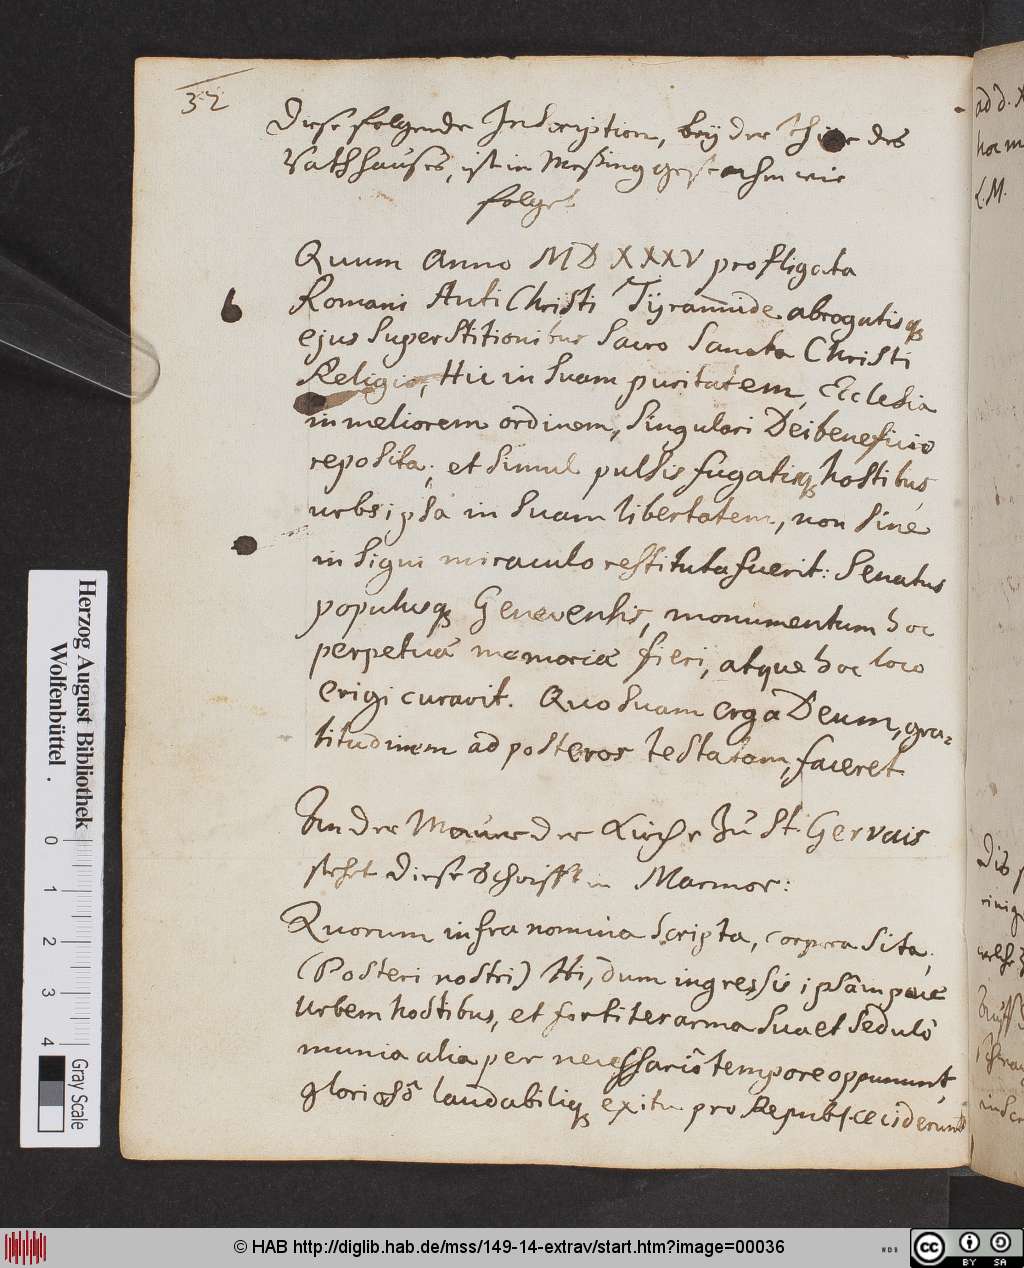 32
Diese folgende Inscription, beÿ der Thüre des
Rathhauses, ist in Messing gestochen wie
folget
Quum Anno MDXXXV profligata
Romani AntiChristi Tÿrannide abrogatisq
ejus SuperStitionibus Sacro Sancta Christi
Religio, Hic in Suam puritatem, Ecclesia
in meliorem ordinem, Singulari Dei beneficio
reposita; et Simul pulsis fugatisq hostibus
urbs ipsa in Suam libertatem, non Sine
insigni miraculo restituta fuerit: Senatus
populusq Genevensis, monumentum hoc
perpetuæ memoriæ fieri, atque hoc loco
erigi curavit. Quo Suam erga Deum, gra-
titudinem ad posteros testatam, faceret
An der Mauer der Kirche zu St. Gervais
stehet diese Schrifft in Marmor:
Quorum infra nomina Scripta, corpora Sita,
(Posteri nostri) Hi, dum ingressis ipsam pene
Urbem hostibus, et fortiter arma Sua et Sedulo
munia alia per necessario tempore oppununt,
glorioso laudabiliq exitu pro Republ. ceciderunt
add.
hoc
L. M.
Herzog August Bibliothek
Wolfenbüttel
0 1 2 3 4
Gray Scale
© HAB http://diglib.hab.de/mss/149-14-extrav/start.htm?image=00036
WDB
cc BY SA